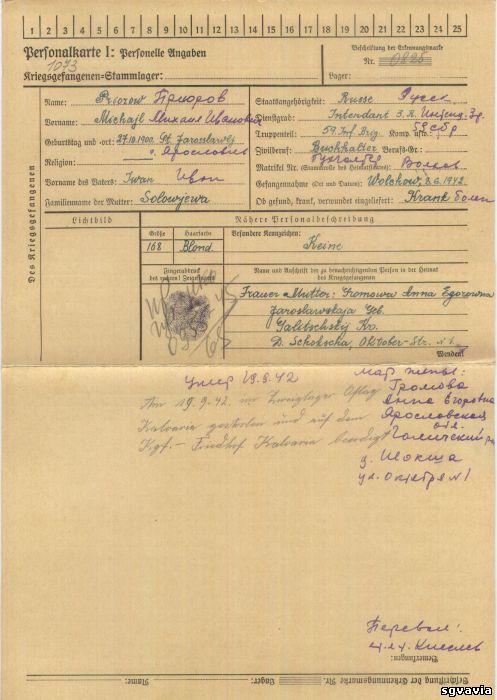 1 2 3 4 5 6 7 8 9 10 11 12 13 14 15 16 17 18 19 20 21 22 23 24 25
Personalkarte I: Personelle Angaben
1073
Kriegsgefangenen-Stammlager:
Beschriftung der Erkennungsmarke
Nr. 0825
Lager:
Des Kriegsgefangenen
Name: Приоров
Vorname: Michajl Михаил Иванович
Geburtstag und -ort: 27.10.1900 Jaroslawlj
Ярославль
Religion:
Vorname des Vaters: Iwan Иван
Familienname der Mutter: Solowjewa
Staatsangehörigkeit: Russe Русск
Dienstgrad: Intendant 3. R. Интенд. 3р.
Truppenteil: 59 Inf. Brig. Komp. usw.:
Zivilberuf: Buchhalter Berufs-Gr.:
Бухгалтер
Matrikel Nr. (Stammrolle des Heimatstaates): Волхов
Gefangennahme (Ort und Datum): Wolchow, 8.6.1942
Ob gesund, krank, verwundet eingeliefert: Krank болен
Lichtbild
Nähere Personalbeschreibung
Größe Haarfarbe Besondere Kennzeichen:
168 Blond. Keine
Fingerabdruck
des rechten Zeigefingers
Name und Anschrift der zu benachrichtigenden Person in der Heimat
des Kriegsgefangenen
Frauen Mutter: Gromowa Anna Egorowna
Jaroslawskaja Geb.
Galitschskÿ Kr.
D. Schokscha, Oktober-Str. № 1.
Wenden!
Умер 19.9.42
Am 19.9.42 im Zweiglager Oflag
Kalvaria gestorben und auf dem
Kgf.-Friedhof Kalvaria beerdigt
мать жены:
Громова
Анна Егоровна
Ярославская
обл.
Галичский
д. Шокша
ул. Октября №1
Перевел:
Киселев
Bemerkungen:
Beschriftung der Erkennungsmarke Nr. Lager: Name:
sgvavia